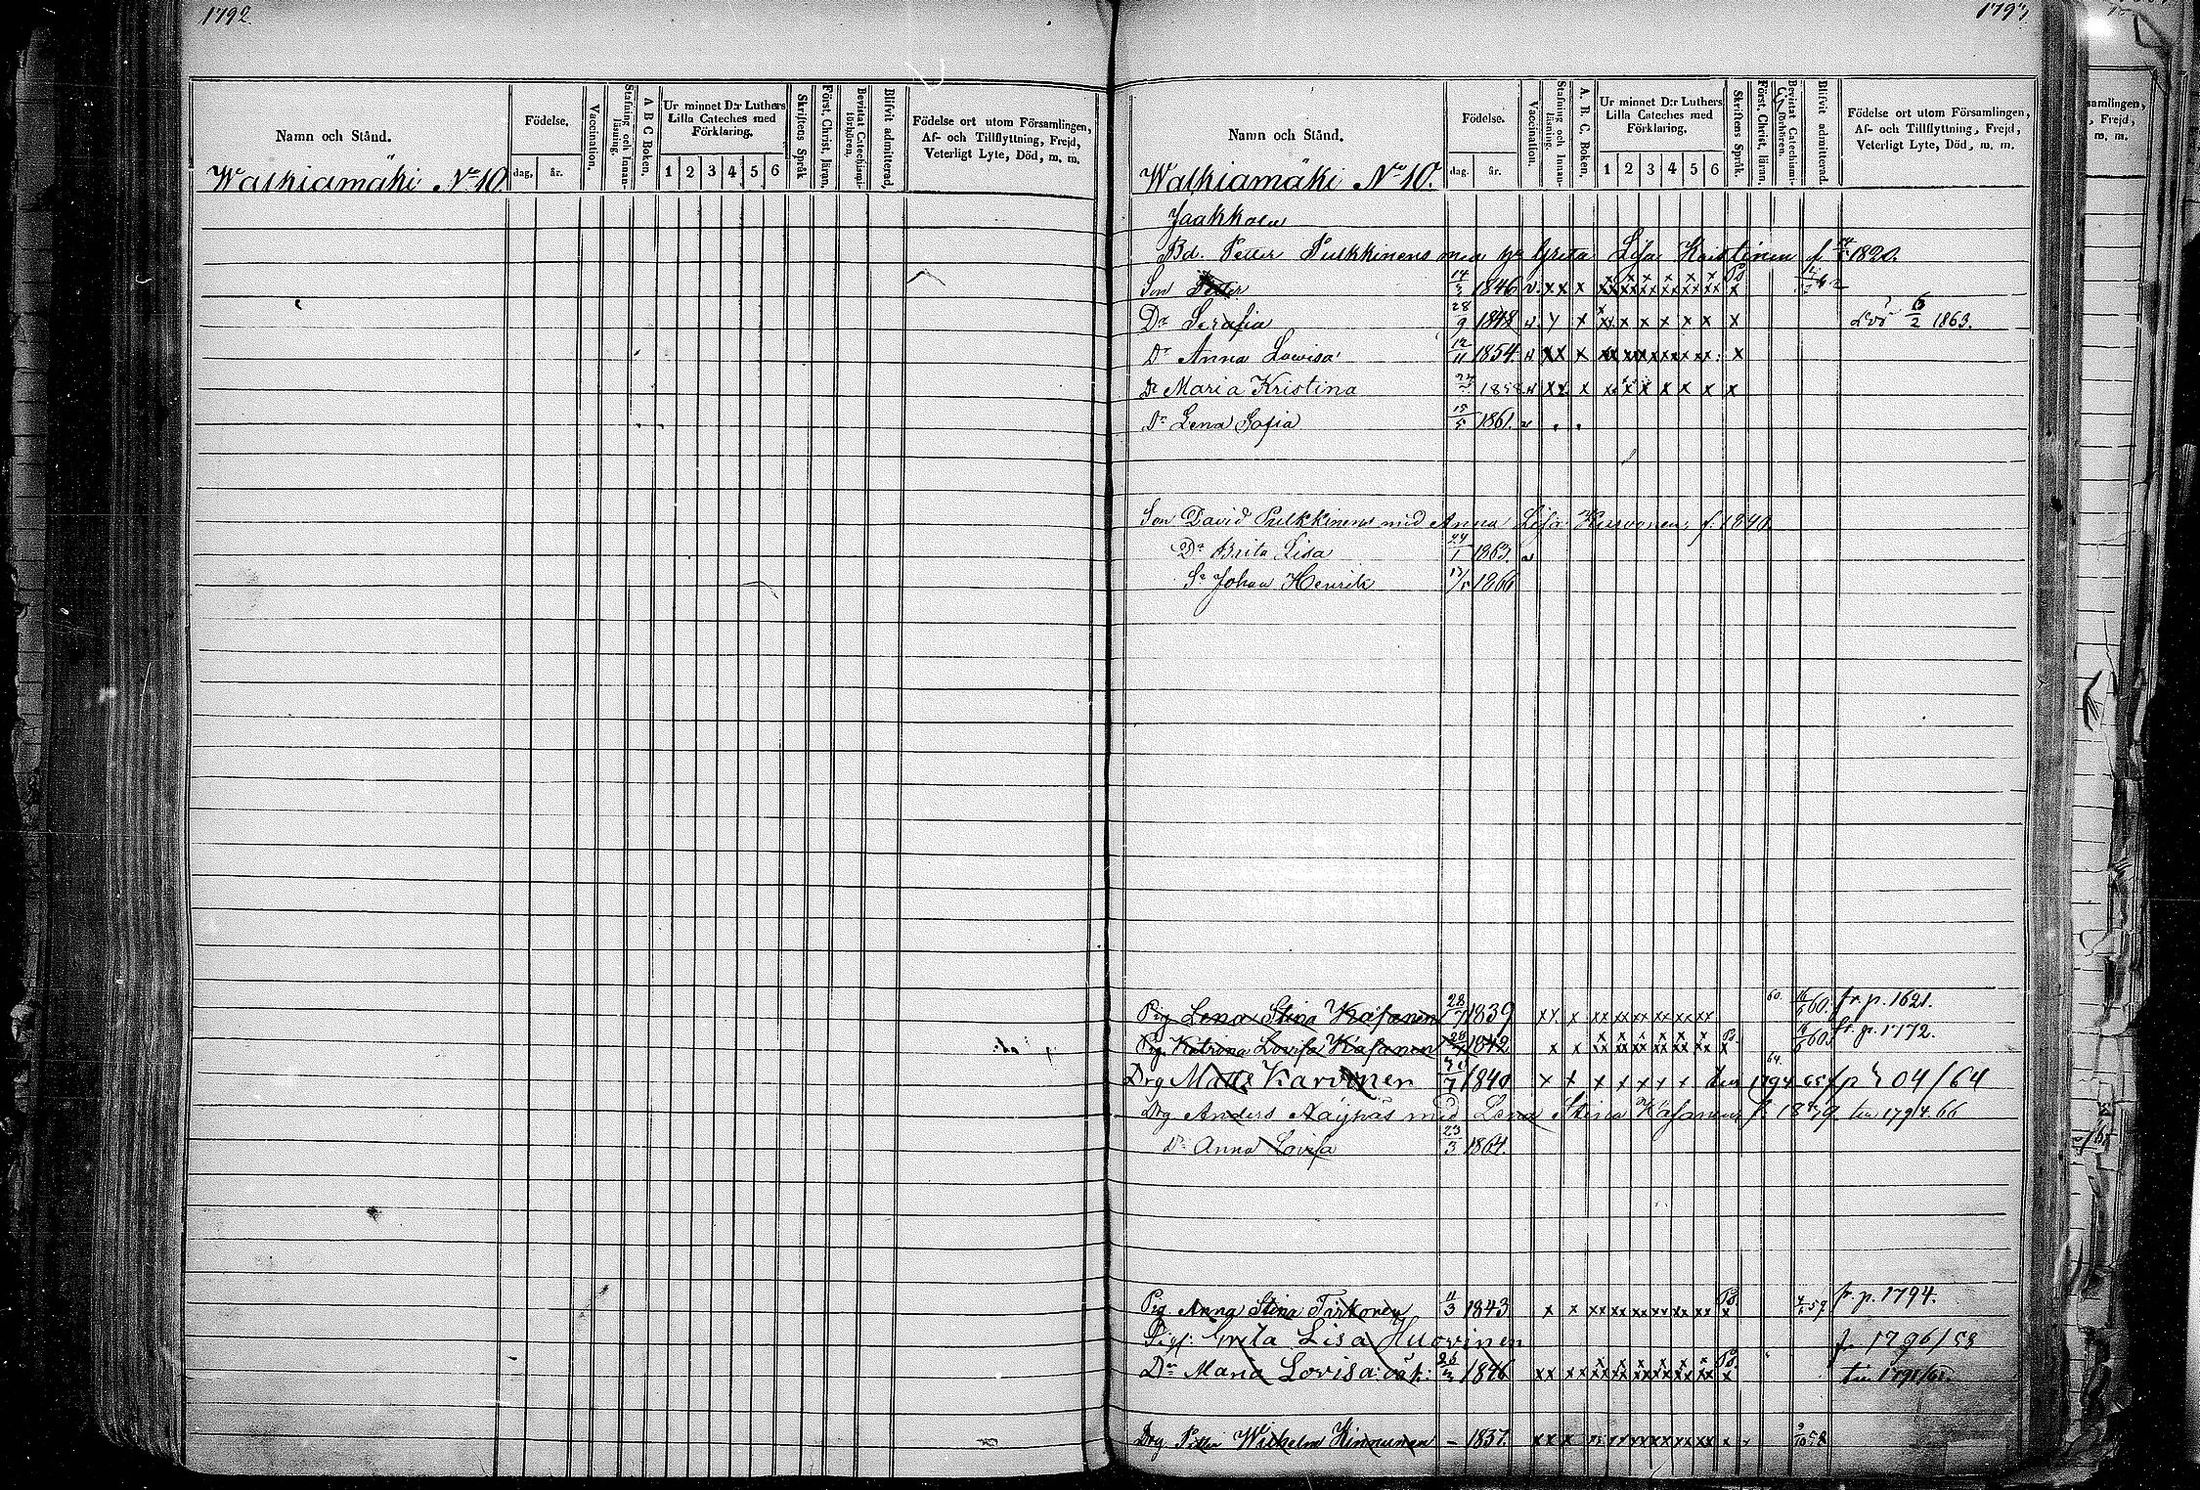 1792.
Namn och Stånd.
Födelse.
dag, år.
Vaccination.
Stafning och Innanläsning.
A B C Boken.
Ur minnet D:r Luthers Lilla Cateches med Förklaring.
1 2 3 4 5 6
Skriftens Språk
Först. Christ. läran.
Bevistat Catechismiförhören.
Blifvit admitterad.
Födelse ort utom Församlingen, Af- och Tillflyttning, Frejd, Veterligt Lyte, Död, m. m.
Walkiamäki No 10.
1793.
Namn och Stånd.
Födelse.
dag. år.
Vaccination.
Stafning och Innanläsning.
A. B. C. Boken.
Ur minnet D:r Luthers Lilla Cateches med Förklaring.
1 2 3 4 5 6
Skriftens Språk.
Först. Christ. läran.
Bevistat Catechismiförhören.
Blifvit admitterad.
Födelse ort utom Församlingen, Af- och Tillflyttning, Frejd, Veterligt Lyte, Död, m. m.
Walkiamäki No 10.
Jaakkola
Bd. Petter Pulkkinens med Greta Lisa Kaistinen f 1820.
Son Petter 1846
Dr Serafia 28/9 1848 6/2 1863.
Dr Anna Lowisa 12/11 1854
Dr Maria Kristina 1858
Dr Lena Sofia 15/5 1861
Son David Pulkkinens med Anna Lisa f. 1840.
Dr Brita Lisa 24/1 1863
Sn Johan Henrik 1866
Pig Lena Stina Käsänen 28/7 1839 60. fr. p. 1621.
Pig Katrina Lovisa Käsänen 1842 60 fr. p. 1772.
Drg Matts Karvonen 1840 64. 1794
Drg Anders Näypäs med Lena Stina Käsänen f. 1839 1794. 66
Dr Anna Lovisa 23/3 1864.
Pig Anna Stina Tirkonen 11/3 1843 57 fr p. 1794.
Greta Lisa Huovinen fr 1796/58
Dr Maria Lovisa 1846
Drg Petter Wilhelm Kinnunen – 1837. 58